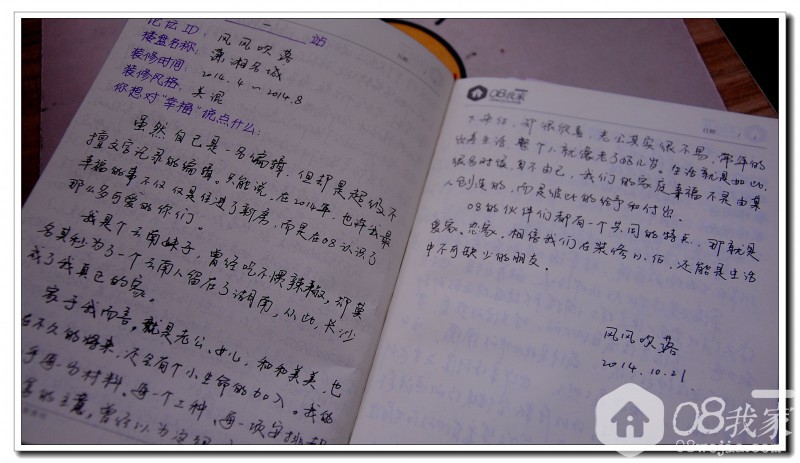 论坛ID: 风风吹落
楼盘名称: 潇湘名城
装修时间: 2014.4～2014.8
装修风格: 美混
你想对“幸福”说点什么:
虽然自己是一名编辑,但却是超级不
擅文字记录的编辑。只能说,在2014年,也许我最
幸福的事不仅仅是住进了新房,而是在08认识了
那么多可爱的你们。
我是个云南妹子,曾经吃不惯辣椒,却莫
名其妙为了一个云南人留在了湖南,从此,长沙
成了我真正的家。
家于我而言,就是老公、女儿,和和美美,也
在不久的将来,还会有个小生命的加入。我的
每一份材料。每一个工种,每一项安排
的主意,曾经以为
08我家
,那很欣慰,老公其实很不易,常年的
生活,整个人就像老了好几岁。生活就是如此,
很多时候,身不由己,我们的家庭幸福不是由某
人创造的,而是彼此的给予和付出。
08的伙伴们都有一个共同的特点,那就是
爱家、恋家,相信我们在装修以后,还能是生活
中不可缺少的朋友。
风风吹落
2014.10.21
08我家
08wojia.com